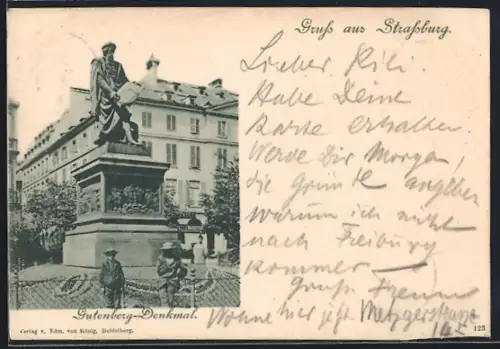 Gruß aus Straßburg.
Lieber Kili.
Habe Deine
Karte erhalten.
Werde Dir Morgen,
die Gründe angeben
warum ich nicht
nach Freiburg
komme —
Gruß
Wohne hier jetzt Metzgerstrasse
Gutenberg-Denkmal.
Verlag v. Edm. von König, Heidelberg.
123